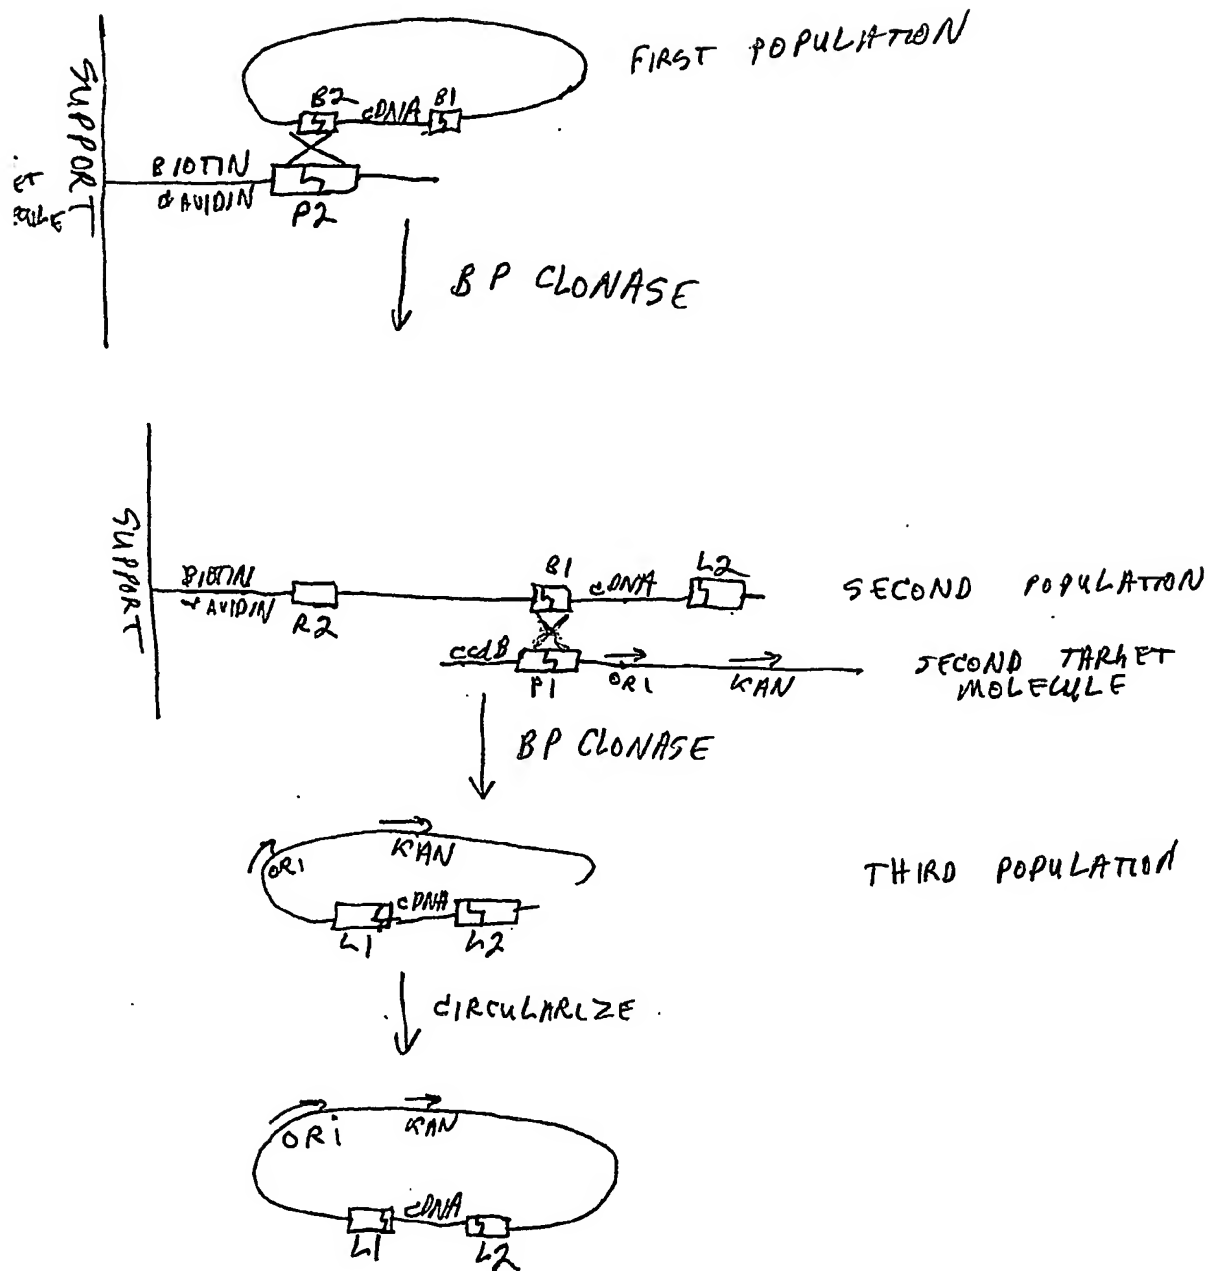 FIRST POPULATION
B2 cDNA B1
SUPPORT
BIOTIN
AVIDIN
P2
BP CLONASE
SUPPORT
BIOTIN
AVIDIN
R2
B1 cDNA L2
SECOND POPULATION
ccdB P1 ORI KAN
SECOND TARGET
MOLECULE
BP CLONASE
ORI KAN
THIRD POPULATION
L1 cDNA L2
CIRCULARIZE
ORi KAN
L1 cDNA L2